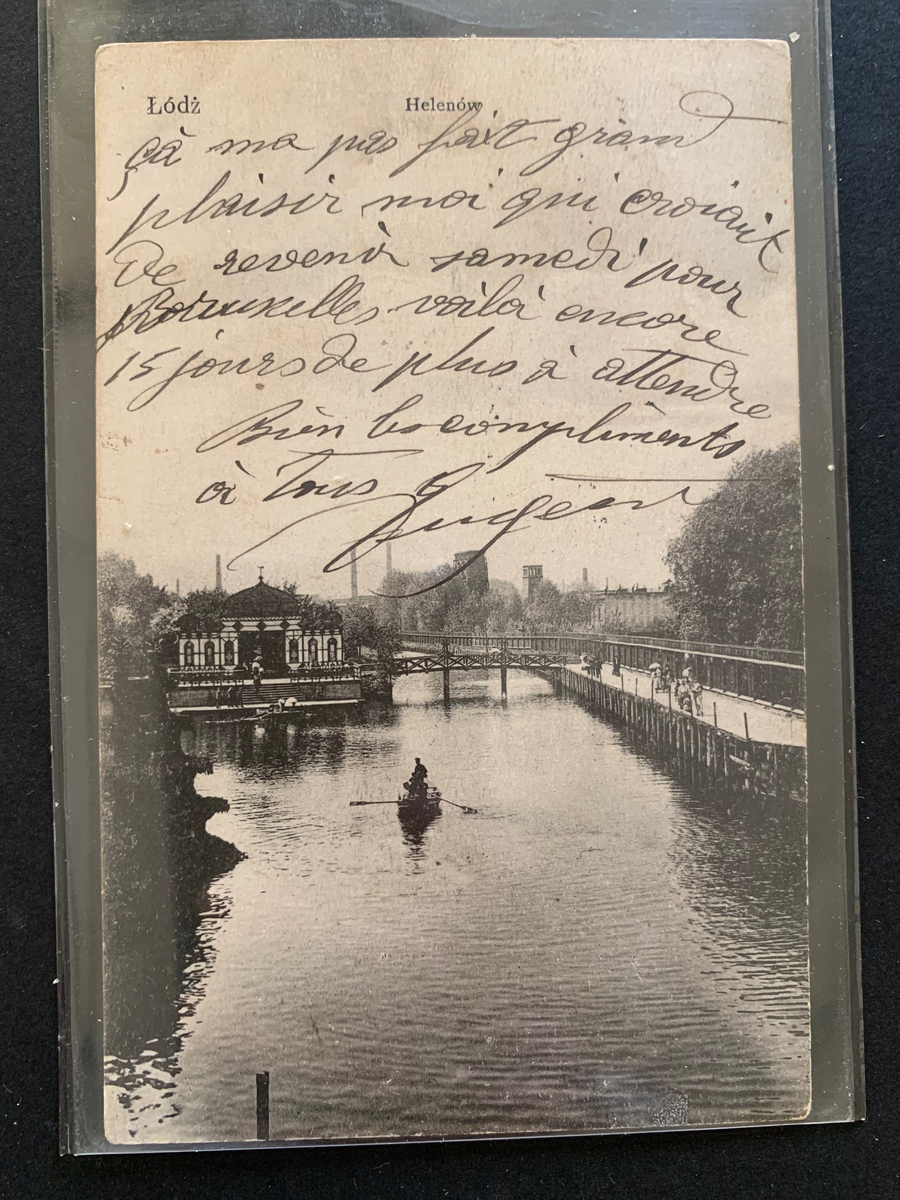 Łódż Helenów
çà ma pas fait grand
plaisir moi qui croiait
De revenir samedi pour
Bruxelles voilà encore
15 jours de plus à attendre
Bien les compliments
à Tous